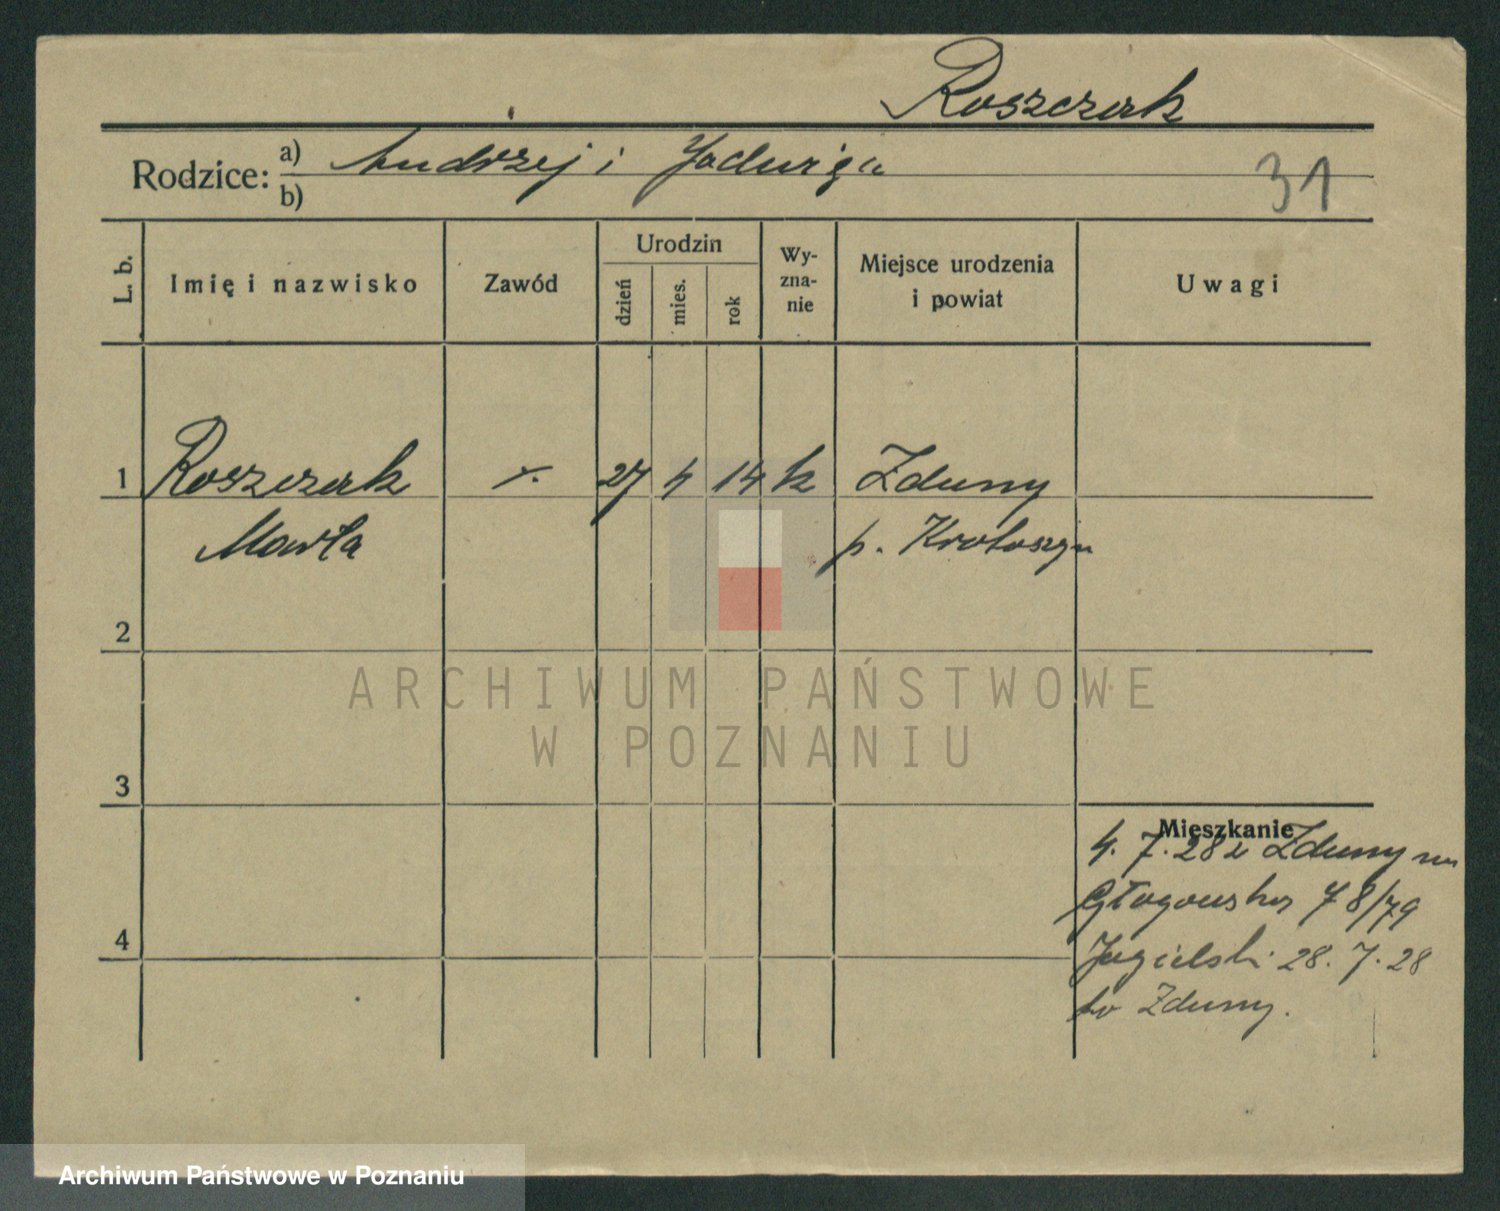 Roszczak
Rodzice: a) Andrzej i Jadwiga
b)
31
L. b.
Imię i nazwisko
Zawód
Urodzin
dzień
mies.
rok
Wy-
zna-
nie
Miejsce urodzenia
i powiat
Uwagi
1 Roszczak 27 4 14 k Zduny
Marta p. Krotoszyn
2
ARCHIWUM PAŃSTWOWE
W POZNANIU
3
Mieszkanie
4. 7. 28 z Zduny na
Głogowska 78/79
4
Jagielski 28. 7. 28
do Zduny.
Archiwum Państwowe w Poznaniu